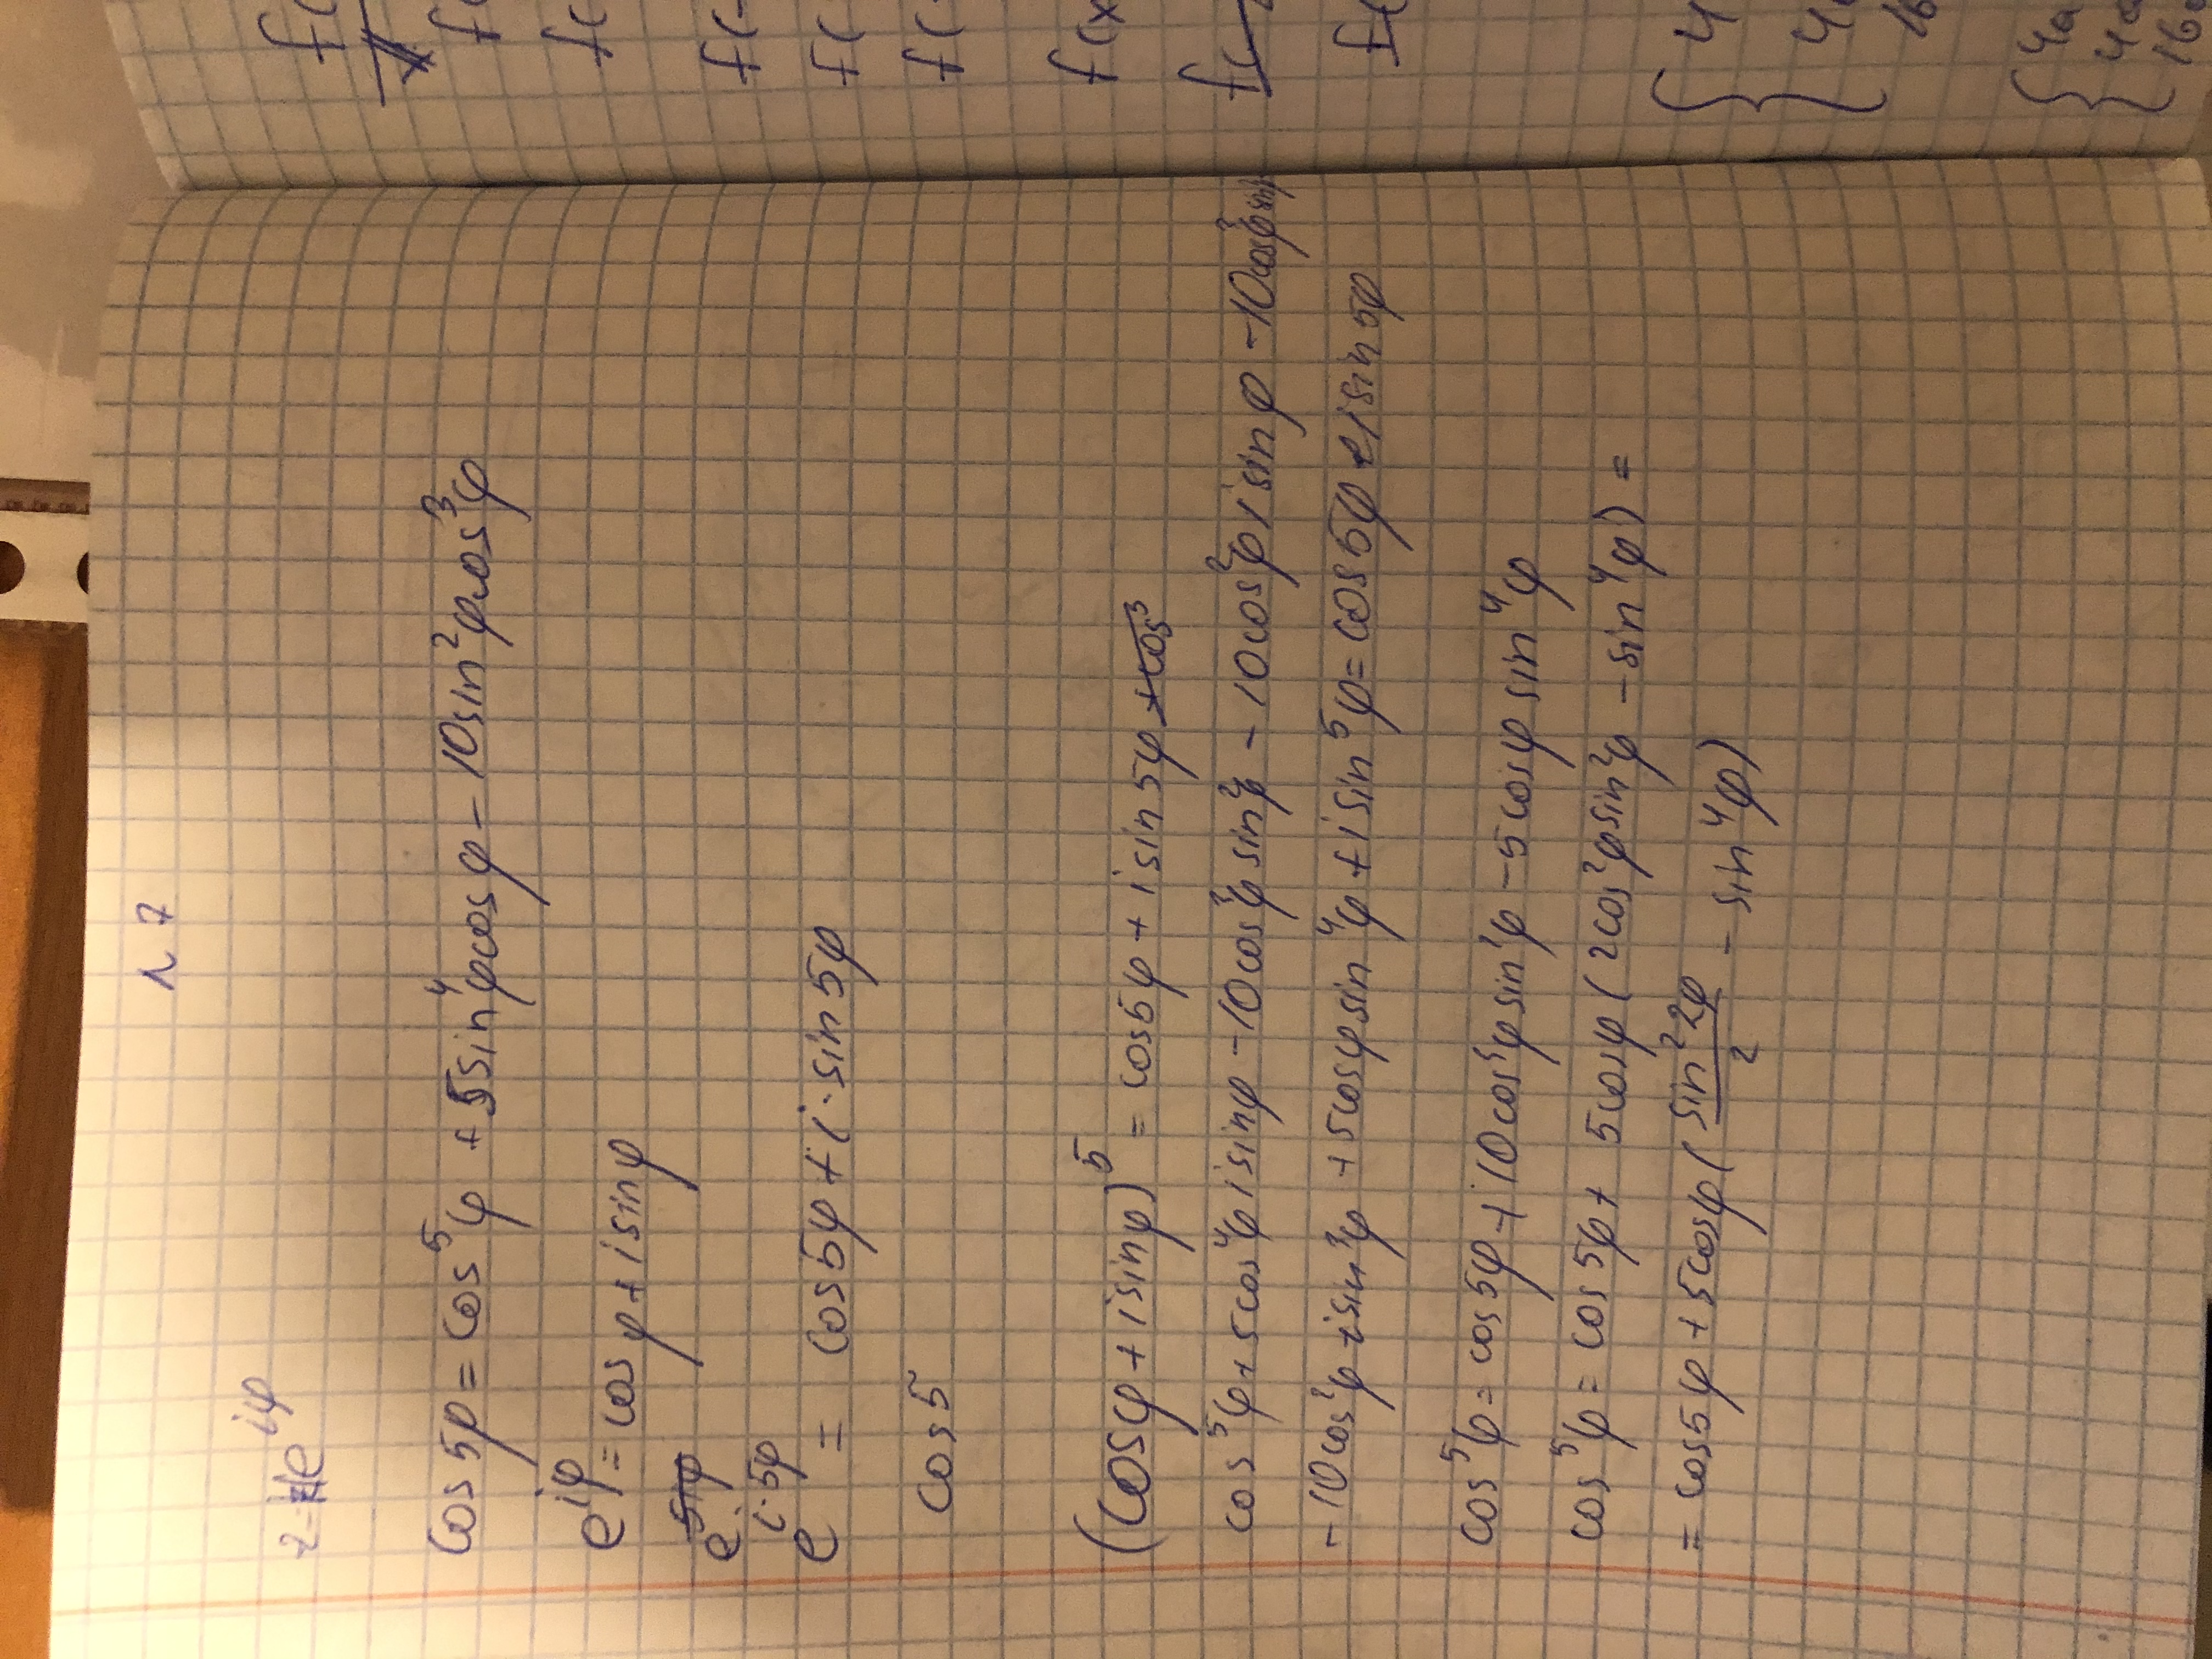 № 7
z = e^{iφ}
cos 5φ = cos^5 φ + 5 sin^4 φ cos φ - 10 sin^2 φ cos^3 φ
e^{iφ} = cos φ + i sin φ
e^{5iφ}
e^{i·5φ} = cos 5φ + i · sin 5φ
cos 5
(cos φ + i sin φ)^5 = cos 5φ + i sin 5φ + cos^3
cos^5 φ + 5 cos^4 φ i sin φ - 10 cos^3 φ sin^2 φ - 10 cos^2 φ i sin φ - 10 cos^3 φ
- 10 cos^2 φ i sin^3 φ + 5 cos φ sin^4 φ + i sin^5 φ = cos 5φ + i sin 5φ
cos^5 φ = cos 5φ + 10 cos φ sin^2 φ - 5 cos φ sin^4 φ
cos^5 φ = cos 5φ + 5 cos φ (2 cos^2 φ sin^2 φ - sin^4 φ) =
= cos 5φ + 5 cos φ (sin^2 2φ / 2 - sin^4 φ)
f(
f(
f(
f(-
f(
f(
f(x
f(
f(
4
4
16
4a
4a
16